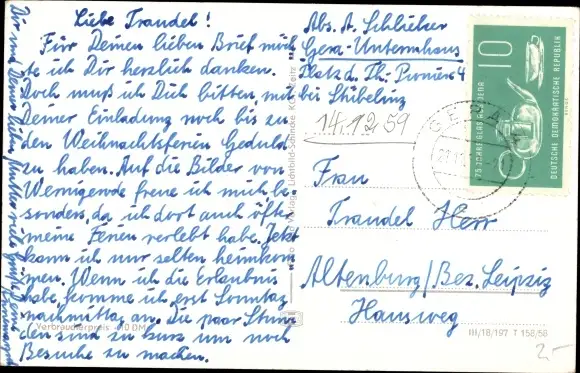 Liebe Traudel!
Für Deinen lieben Brief möch
te ich Dir herzlich danken.
Doch muß ich Dich bitten, mit
Deiner Einladung noch bis zu
den Weihnachtsferien Geduld
zu haben. Auf die Bilder von
Wernigerode freue ich mich be
sonders, da ich dort auch öfter
meine Ferien verlebt habe. Jetzt
kann ich nur selten heimkom
men. Wenn ich die Erlaubnis
habe, komme ich erst Sonntag
nachmittag an. Die paar Stun
den sind zu kurz um noch
Besuche zu machen.
Dir und Deiner lieben Mutter viele
Verbraucherpreis -10 DM
Abs. A. Schlücker
Gera-Untermhaus
Platz d. Th. Pioniere 4
bei Stübeling
14.12.59
Frau
Traudel Herr
Altenburg/Bez. Leipzig
Hausweg
GERA
10
75 JAHRE GLAS AUS JENA
DEUTSCHE DEMOKRATISCHE REPUBLIK
III/18/197 T 158/58
2-